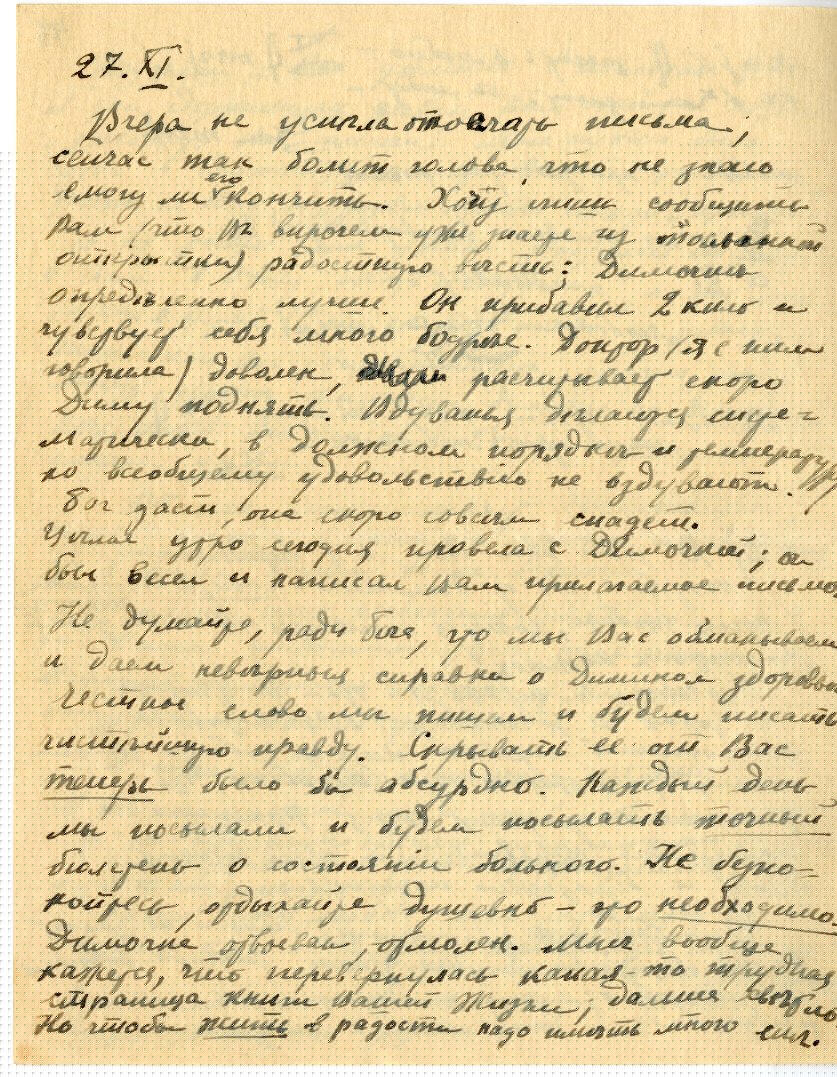 27.XI.
Вчера не успѣла отослать письма,
сейчас так болит голова, что не знаю
смогу ли его кончить. Хочу лишь сообщить
Вам (что Вы впрочем уже знаете из посланной
открытки) радостную вѣсть: Димочкѣ
опредѣленно лучше. Он прибавил 2 кило и
чувствует себя много бодрѣе. Доктор (я с ним
говорила) доволен, расчитывает скоро
Диму поднять. Вдуванья дѣлаются систе=
матически, в должном порядкѣ и температуру
ко всеобщему удовольствію не вздувают.
Бог даст, она скоро совсѣм спадет.
Цѣлое утро сегодня провела с Димочкой; он
был весел и написал Вам прилагаемое письмо.
Не думайте, ради бога, что мы Вас обманываем
и даем невѣрныя справки о Димином здоровьи
Честное слово мы пишем и будем писать
чистѣйшую правду. Скрывать ее от Вас
теперь было бы абсурдно. Каждый день
мы посылали и будем посылать точный
бюлетень о состояніи больного. Не безпо=
койтесь, отдыхайте душевно – это необходимо.
Димочка отвоеван, отмолен. Мнѣ вообще
кажется, что перевернулась какая-то трудная
страница книги Вашей Жизни; дальше свѣтло
Но чтобы жить в радости надо имѣть много сил.